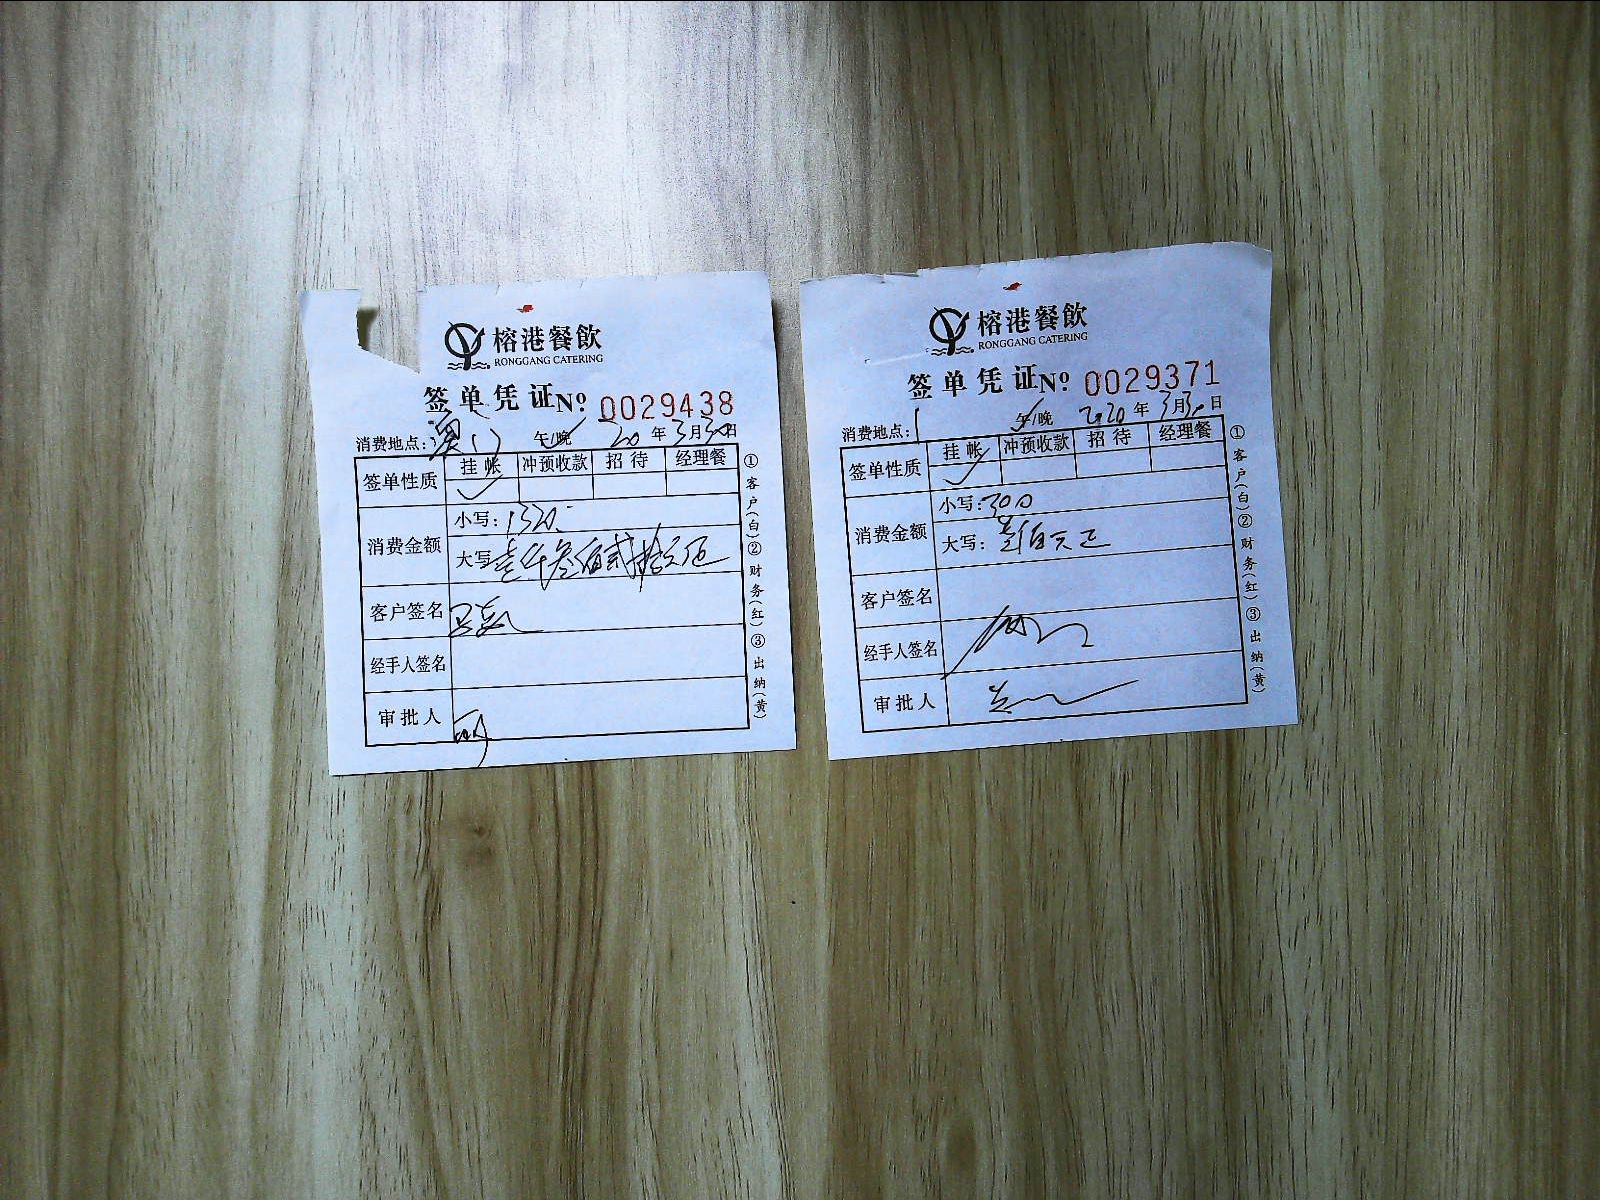 榕港餐飲
RONGGANG CATERING
签单凭证№ 0029438
消费地点：澳门 午/晚 20年3月30日
签单性质 挂帐 冲预收款 招待 经理餐
✓
消费金额
小写：1320.
大写 壹仟叁佰贰拾元正
客户签名
经手人签名
审批人
①客户(白)②财务(红)③出纳(黄)
榕港餐飲
RONGGANG CATERING
签单凭证№ 0029371
消费地点：1 午/晚 2020年3月30日
签单性质 挂帐 冲预收款 招待 经理餐
✓
消费金额
小写：300
大写：叁佰元正
客户签名
经手人签名
审批人
①客户(白)②财务(红)③出纳(黄)